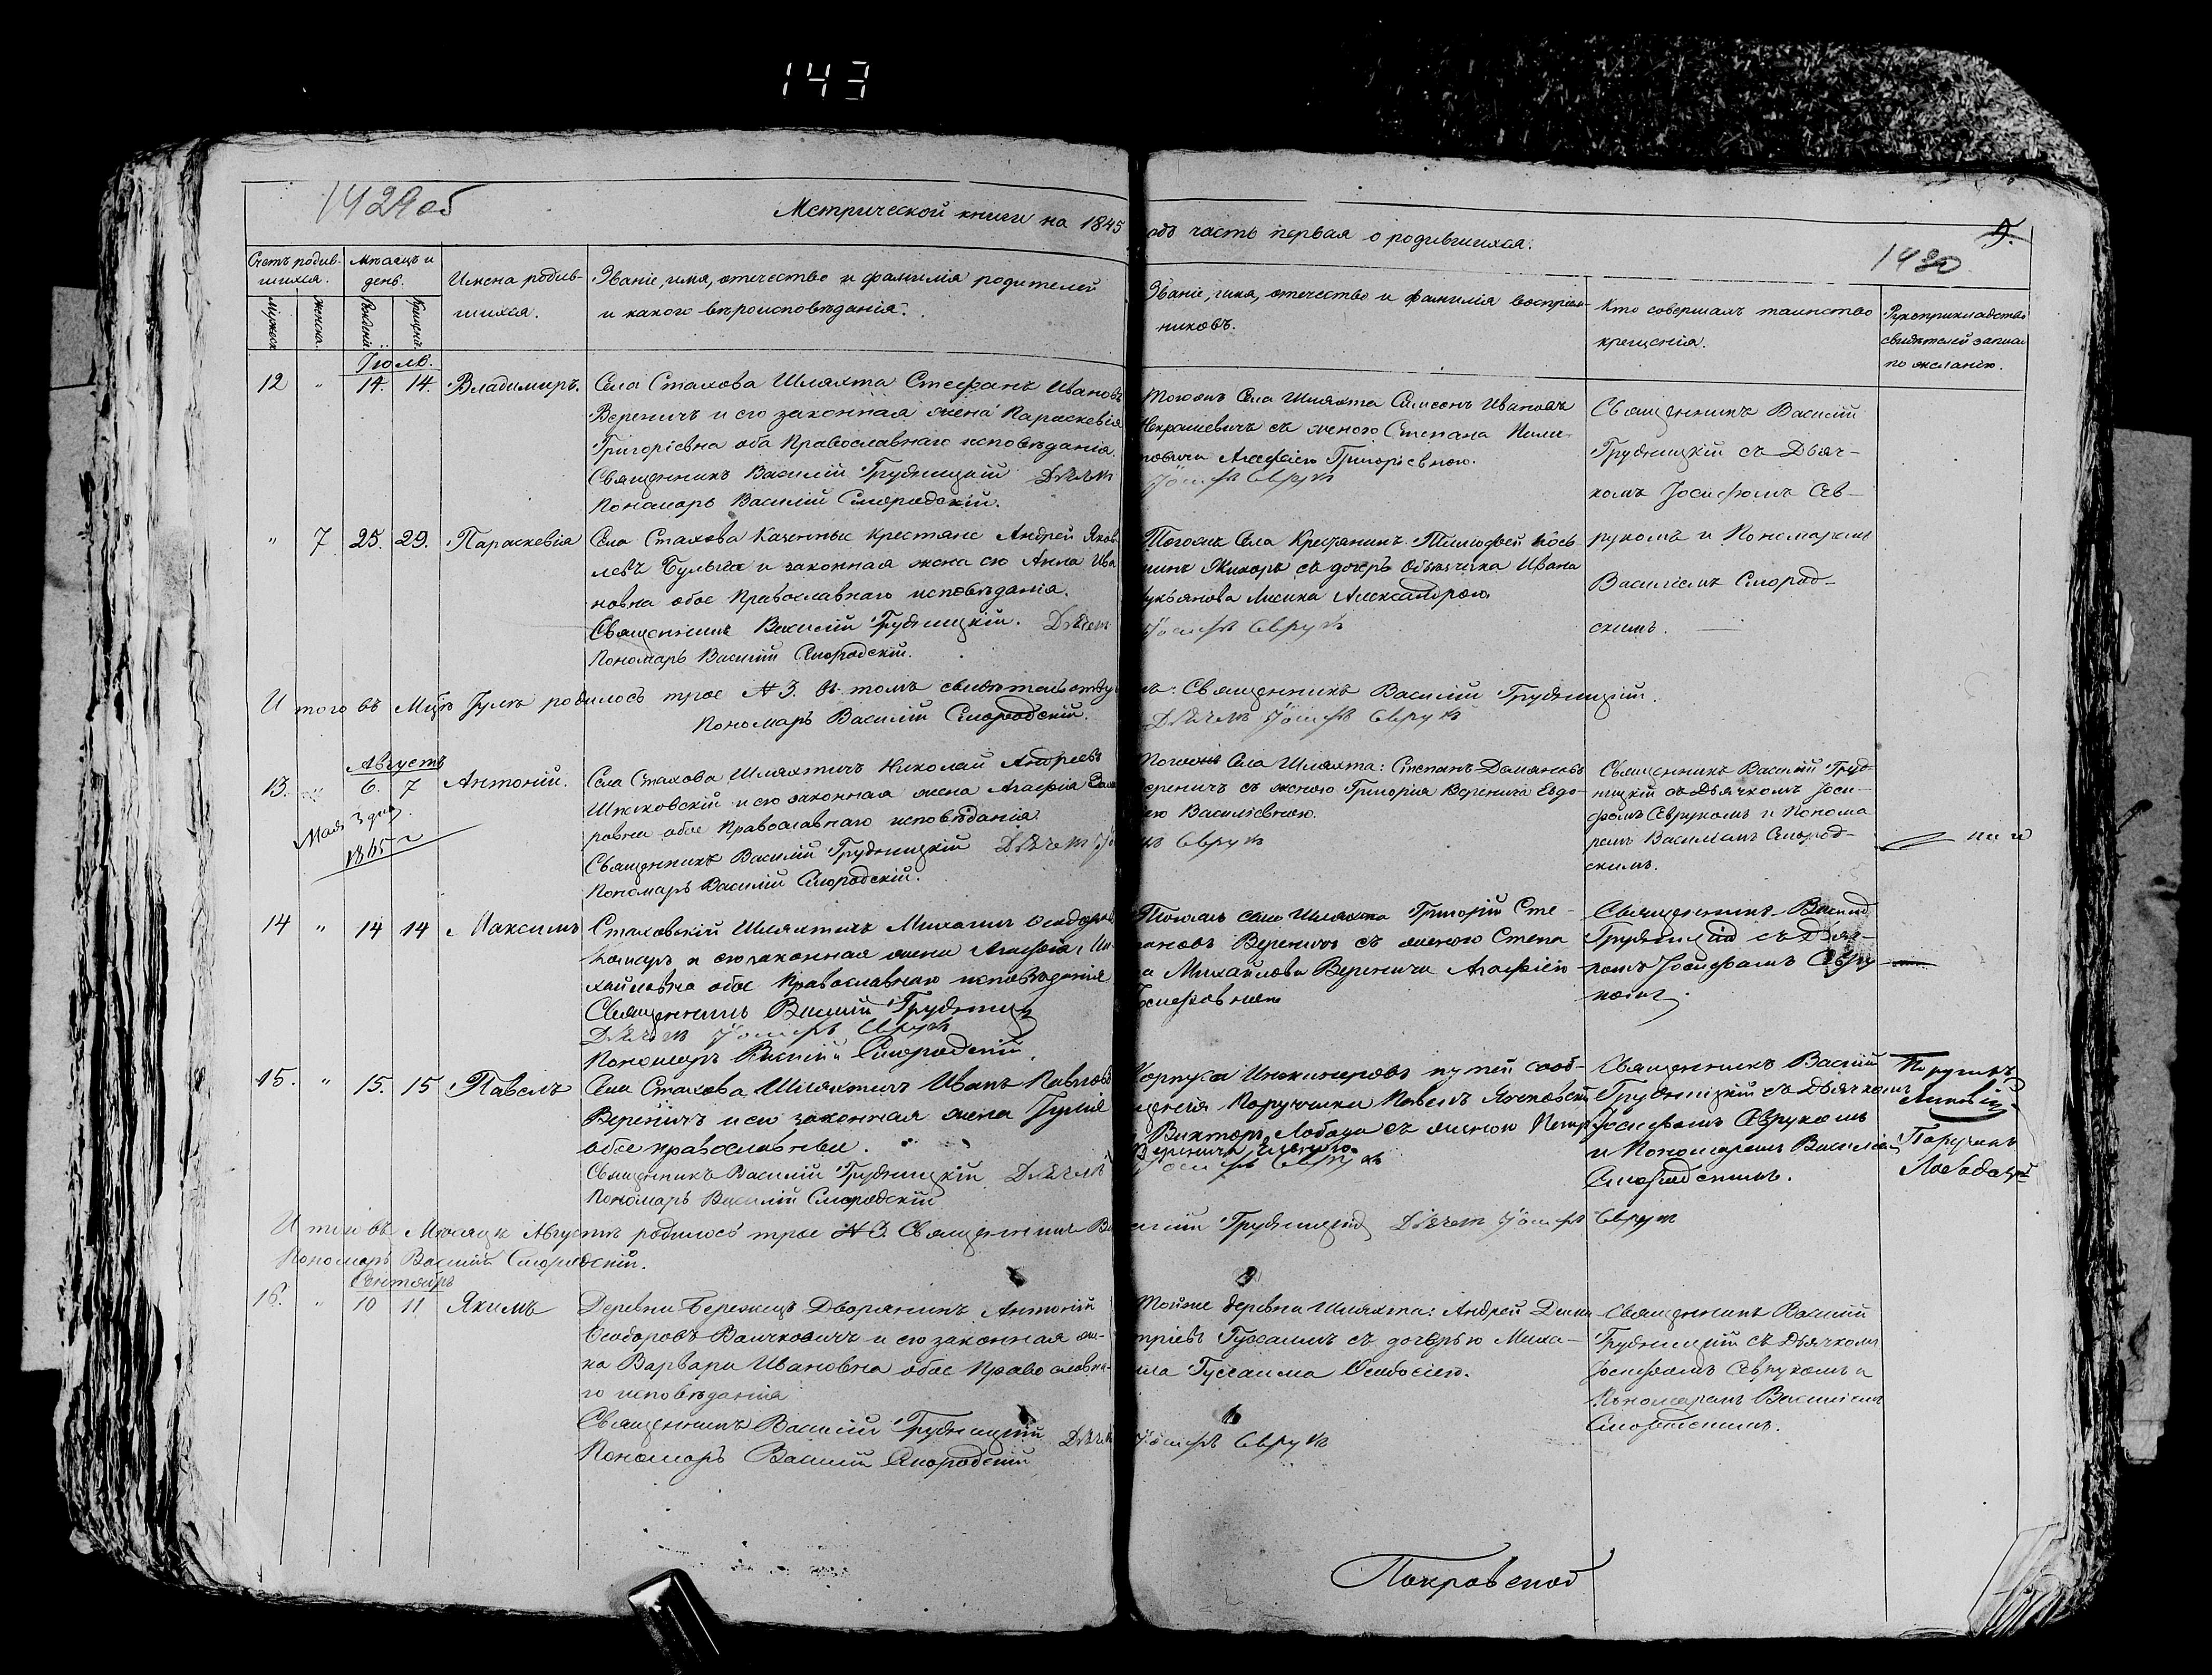 143
1429об
Метрической книги на 1845
одъ часть первая о родившихся.
5.
1430
Счетъ родив-
шихся.
Мужеск.
Женска.
Мѣсяцъ и
день.
Рожденія.
Крещенія.
Имена родив-
шихся.
Званіе, имя, отечество и фамилія родителей
и какого вѣроисповѣданія.
Званіе, имя, отечество и фамилія воспріем-
никовъ.
Кто совершалъ таинство
крещенія.
Рукоприкладство
свидѣтелей записи
по желанію.
Іюль.
12 " 14. 14. Владимиръ.
Села Стахова Шляхта Стефанъ Ивановъ
Вереничъ и его законная жена Параскевія
Григоріевна оба Православнаго исповѣданія.
Священникъ Василій Грудницкій Дьячек
Пономарь Василій Смородскій.
Тогожъ Села Шляхта Симеонъ Ивановъ
Некрашевичъ съ женою Степана
Агафіею Григоріевною.
Іосифъ Севрук
Священникъ Василій
Грудницкій съ Дьяч-
комъ Іосифомъ Сев-
рукомъ и Пономаремъ
Василіемъ Смород-
скимъ.
" 7 25. 29. Параскевія
Села Стахова Казенные крестяне Андрей Яков
левъ Булыга и законная жена его Анна Ива
новна обое Православнаго исповѣданія.
Священникъ Василій Грудницкій. Дьячек
Пономарь Василій Смородскій.
Тогожъ Села Крестянинъ Тимофей Кось-
минъ Жихоръ съ дочерь Объезчика Ивана
укьянова Лисика Александрою
Іосифъ Севрук
Итого въ Мцѣ Іулѣ родилось трое № 3. Въ томъ свидѣтельству
мъ: Священникъ Василій Грудницкій.
Пономарь Василій Смородскій.
Дьячек Іосифъ Севрук
Августъ
13. " 6. 7 Антоній.
Мая 3 дня
1865 г
Села Стахова Шляхтичъ Николай Андреевъ
и его законная жена Агафія
ровна обое Православнаго исповѣданія
Священникъ Василій Грудницкій Дьячек Іо
Пономарь Василій Смородскій.
Тогожъ Села Шляхта: Степанъ Дамановъ
Вереничъ съ женою Григорія Веренича Евдо-
ею Василіевною.
Севрук
Священникъ Василій Груд-
ницкій съ Дьячкомъ Іоси-
фомъ Севрукомъ и Понома
ремъ Василіемъ Смород-
скимъ.
14 " 14 14 Максимъ
Стаховскій Шляхтичъ Михаилъ
Комаръ и его законная жена Агафія Ми-
хайловна обое Православнаго исповѣданія
Священникъ Василій Грудницк
Дьячек Іосифъ Севрук
Пономарь Василій Смородскій.
Тогожъ села Шляхта Григорій Сте-
пановъ Вереничъ съ женою Степа
на Михайлова Веренича Агафіею
Іосифовною
Священникъ Василій
Грудницкій съ Дьяч-
комъ Іосифомъ Севру
комъ.
15. " 15. 15 Павелъ
Села Стахова Шляхтичъ Иванъ Павловъ
Вереничъ и его законная жена Іулія
обое православные.
Священникъ Василій Грудницкій Дьячекъ
Пономарь Василій Смородскій
Корпуса Инженеровъ путей сооб-
щенія Поручики Павелъ Янковскій
Викторъ Лобода съ женою Петр
Веренича
Іосифъ Севрук
Священникъ Василій
Грудницкій съ Дьячкомъ
Іосифомъ Севрукомъ
и Пономаремъ Василіе
Смородскимъ.
Поручикъ
Поручикъ
Лобода
Итого въ Мѣсяцѣ Августѣ родилось трое № 3. Священникъ Ва
силій Грудницкій Дьячек Іосифъ Севрук
Пономарь Василій Смородскій.
Сентябрь
16. " 10 11 Якимъ
Деревни Бережецъ Дворянинъ Антоній
Ѳеодоровъ Волчковичъ и его законная же-
на Варвара Ивановна обое Православна-
го исповѣданія
Священникъ Василій Грудницкій Дьячек
Пономарь Василій Смородскій
Тойже деревни Шляхта: Андрей Дими
тріевъ Гуссаимъ съ дочерью Миха-
ила Гуссаима Ѳеодосіею.
Іосифъ Севрук
Священникъ Василій
Грудницкій съ Дьячкомъ
Іосифомъ Севрукомъ и
Пономаремъ Василіемъ
Смородскимъ.
Покровской